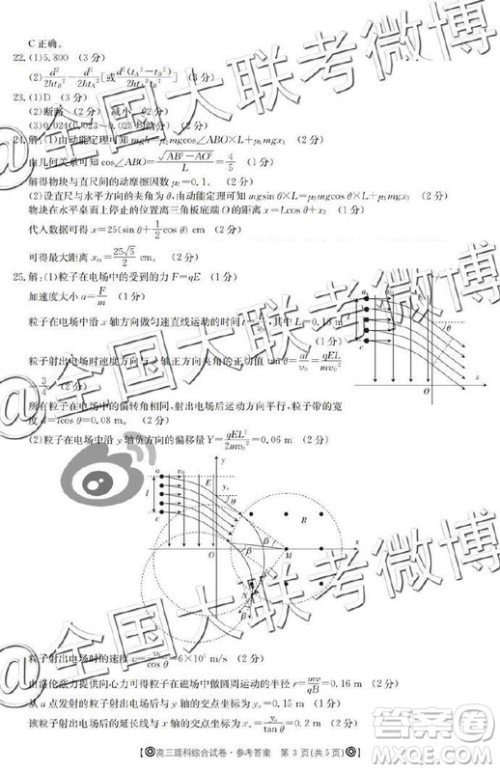 C正确。
22.(1)5.800 (3分)
(2) d²/2ht_B² − d²/2ht_A² [或 d²(t_A²−t_B²)/2ht_A²t_B²] (3分)
23.(1)D (3分)
(2)断路 (2分) 减小 (2分)
(3)0.024(0.023～0.025均给分) (2分)
24.解:(1)由动能定理可知 mgh=μmgcos∠ABO×L+μ₀mgx₁ (2分)
由几何关系可知 cos∠ABO=√(AB²−AO²)/L=4/5 (2分)
解得物块与直尺间的动摩擦因数 μ₀=0.1。 (2分)
(2)设直尺与水平方向的夹角为θ,由动能定理可知 mgsin θ×L=μmgcos θ×L+μ₀mgx₂ (2分)
物块在水平桌面上停止的位置离三角板底端O的距离 x=Lcos θ+x₂ (2分)
代人数据可得 x=25(sin θ+1/2cos θ) cm (2分)
可得最大距离 xₘ=25√5/2 cm。 (2分)
25.解:(1)粒子在电场中的受到的力 F=qE (1分)
加速度大小 a=F/m (1分)
粒子在电场中沿x轴方向做匀速直线运动的时间 t=L/v₀,其中L=0.15 m
(1分)
粒子射出电场时速度方向与x轴正方向夹角的正切值 =at/v₀=qEL/mv₀²
=3/4 (2分)
所有粒子在电场中的偏转角相同,射出电场后运动方向平行,粒子带的宽
度 =0.08 m。 (2分)
(2)粒子在电场中沿y轴负方向的偏移量 Y=qEL²/2mv₀²=0.05 m (2分)
a
v₀
E
θ
O
x
l
a
c
v₀
y
E
yₐ
θ
B
β
β
O
M
N
x
粒子射出电场时的速度 v=v₀/cos θ=6×10⁵ m/s (2分)
由洛伦兹力提供向心力可得粒子在磁场中做圆周运动的半径 r=mv/qB=0.16 m (2分)
从a点射出的粒子射出电场后与y轴的交点坐标为 (1分)
该粒子射出电场后的延长线与x轴的交点坐标为 x=yₐ/tan θ=0.2 m (2分)
高三理科综合试卷·参考答案 第 3 页(共 5 页)
@全国大联考微博
@全国大联考微博
@全国大联考微博